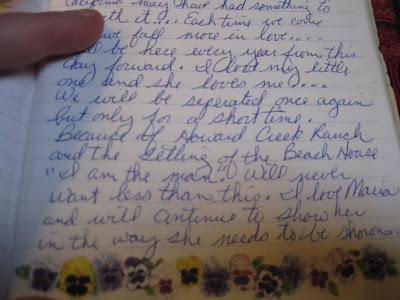 California may have had something to
with it... Each time we come
we fall more in love....
be here every year from this
day forward. I love my little
one and she loves me...
We will be seperated once again
but only for a short time..
Because of Howard Creek Ranch
and the setting of the Beach House
"I am the man" Will never
want less than this. I love Maria
and will continue to show her
in the way she needs to be shown.